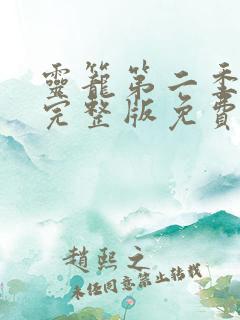 靈籠第二季
完整版免費
趙熙之
未經同意禁止轉載